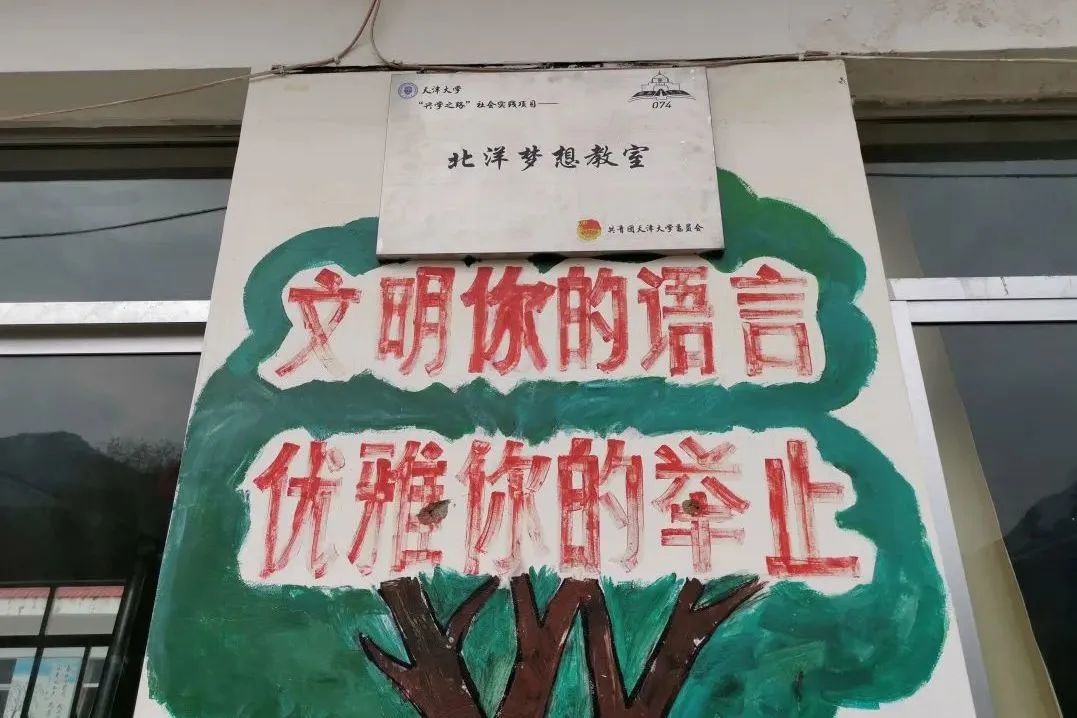 天津大学
“兴学之路”社会实践项目——
074
北洋梦想教室
共青团天津大学委员会
文明你的语言
优雅你的举止